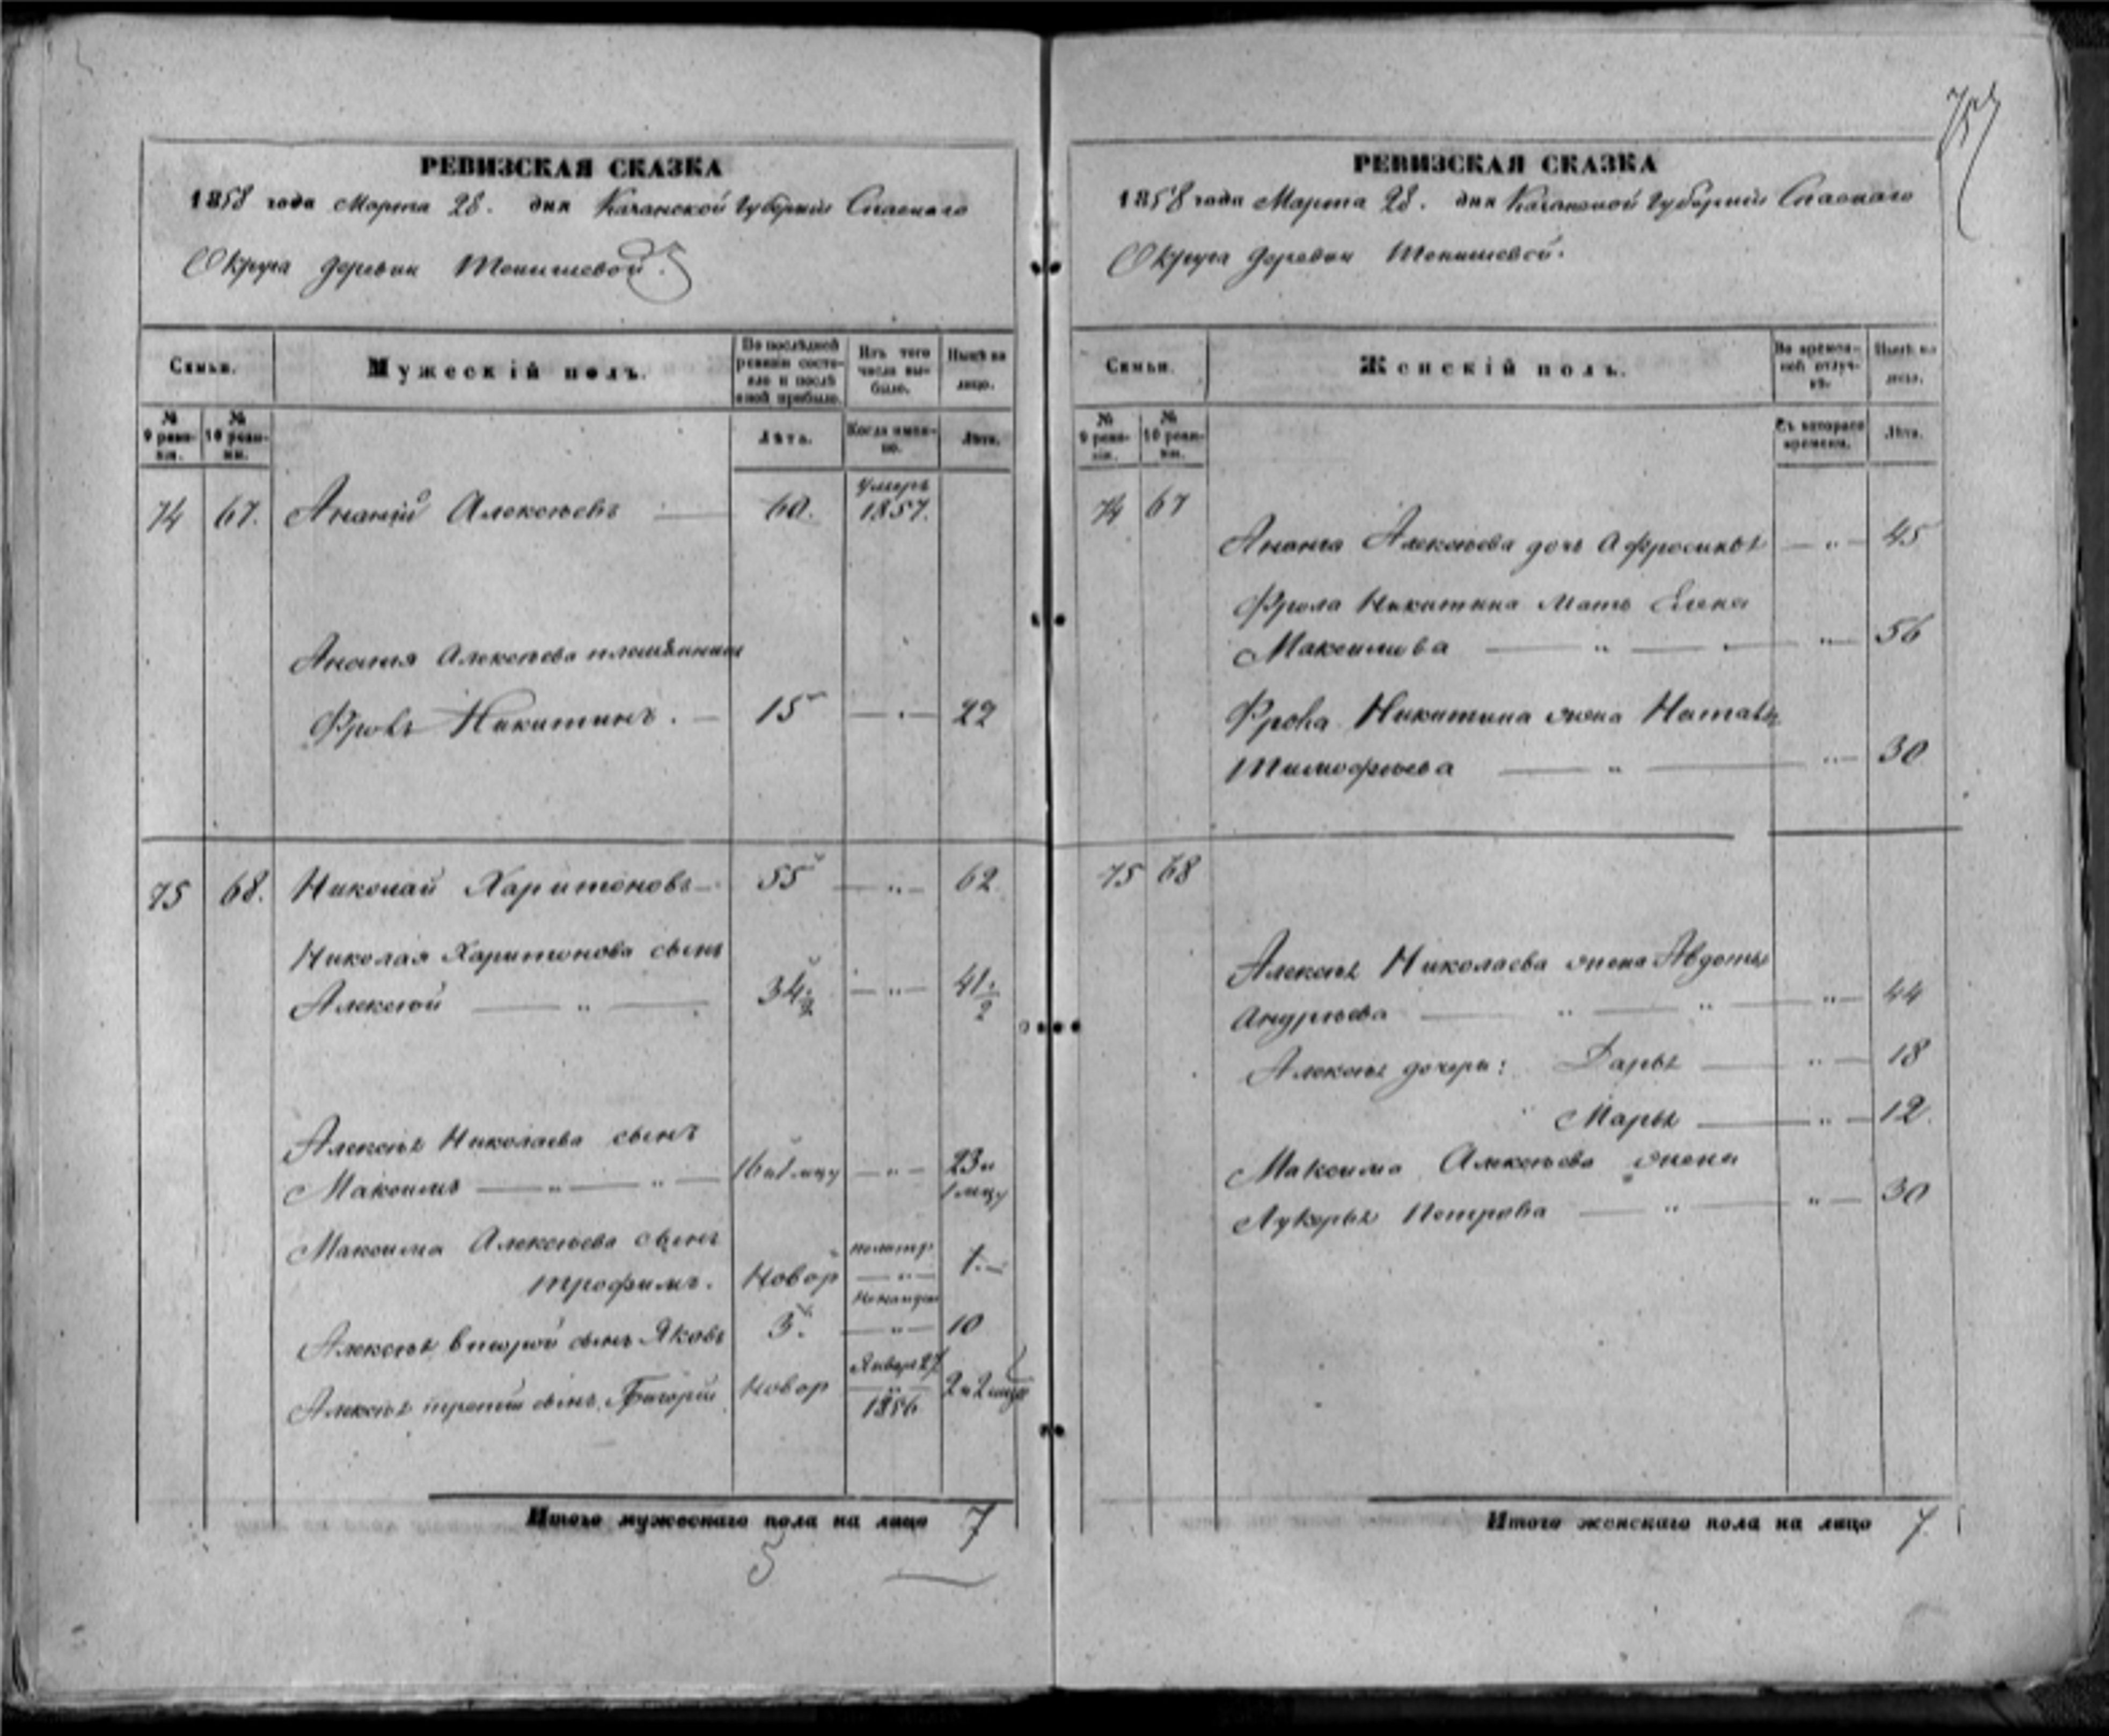 РЕВИЗСКАЯ СКАЗКА
1858 года Марта 28. дня Казанской Губернии Спаскаго
Округа деревни Тенишевой.
Семьи.
Мужескій полъ.
По послѣдней ревизіи состояло и послѣ оной прибыло.
Изъ того числа выбыло.
Нынѣ на лицо.
№ 9 ревизіи.
№ 10 ревизіи.
Лѣта.
Когда именно.
Лѣта.
74 67. Ананій Алексѣевъ 60. умеръ 1857.
Ананія Алексѣева племянникъ
Фролъ Никитинъ. 15 — " — 22
75 68. Николай Харитоновъ 55 — " — 62
Николая Харитонова сынъ
Алексѣй — " — 34 1/2 — " — 41 1/2
Алексѣя Николаева сынъ
Максимъ — " — " — 16 и 1 мцу — " — 23 и 1 мцу
Максима Алексѣева сынъ
Трофимъ. Новор — " — 1
Алексѣя второй сынъ Яковъ 3. — " — 10
Алексѣя третій сынъ Григорій Новор Января 27 1856 2 и 2 мцв
Итого мужескаго пола на лицо 7
РЕВИЗСКАЯ СКАЗКА
1858 года Марта 28. дня Казанской Губерніи Спаскаго
Округа деревни Тенишевой.
Семьи.
Женскій полъ.
Во временной отлучкѣ.
Нынѣ на лицо.
№ 9 ревизіи.
№ 10 ревизіи.
Съ котораго времени.
Лѣта.
74 67
Ананія Алексѣева дочь Афросинья — " — 45
Фрола Никитина мать Елена
Максимова — " — " — 56
Фрола Никитина жена Наталья
Тимофѣева — " — " — 30
75 68
Алексѣя Николаева жена Авдотья
Андрѣева — " — " — " — 44
Алексѣя дочери: Дарья — " — 18
Марья — " — 12.
Максима Алексѣева жена
Лукерья Петрова — " — " — 30
Итого женскаго пола на лицо 7.